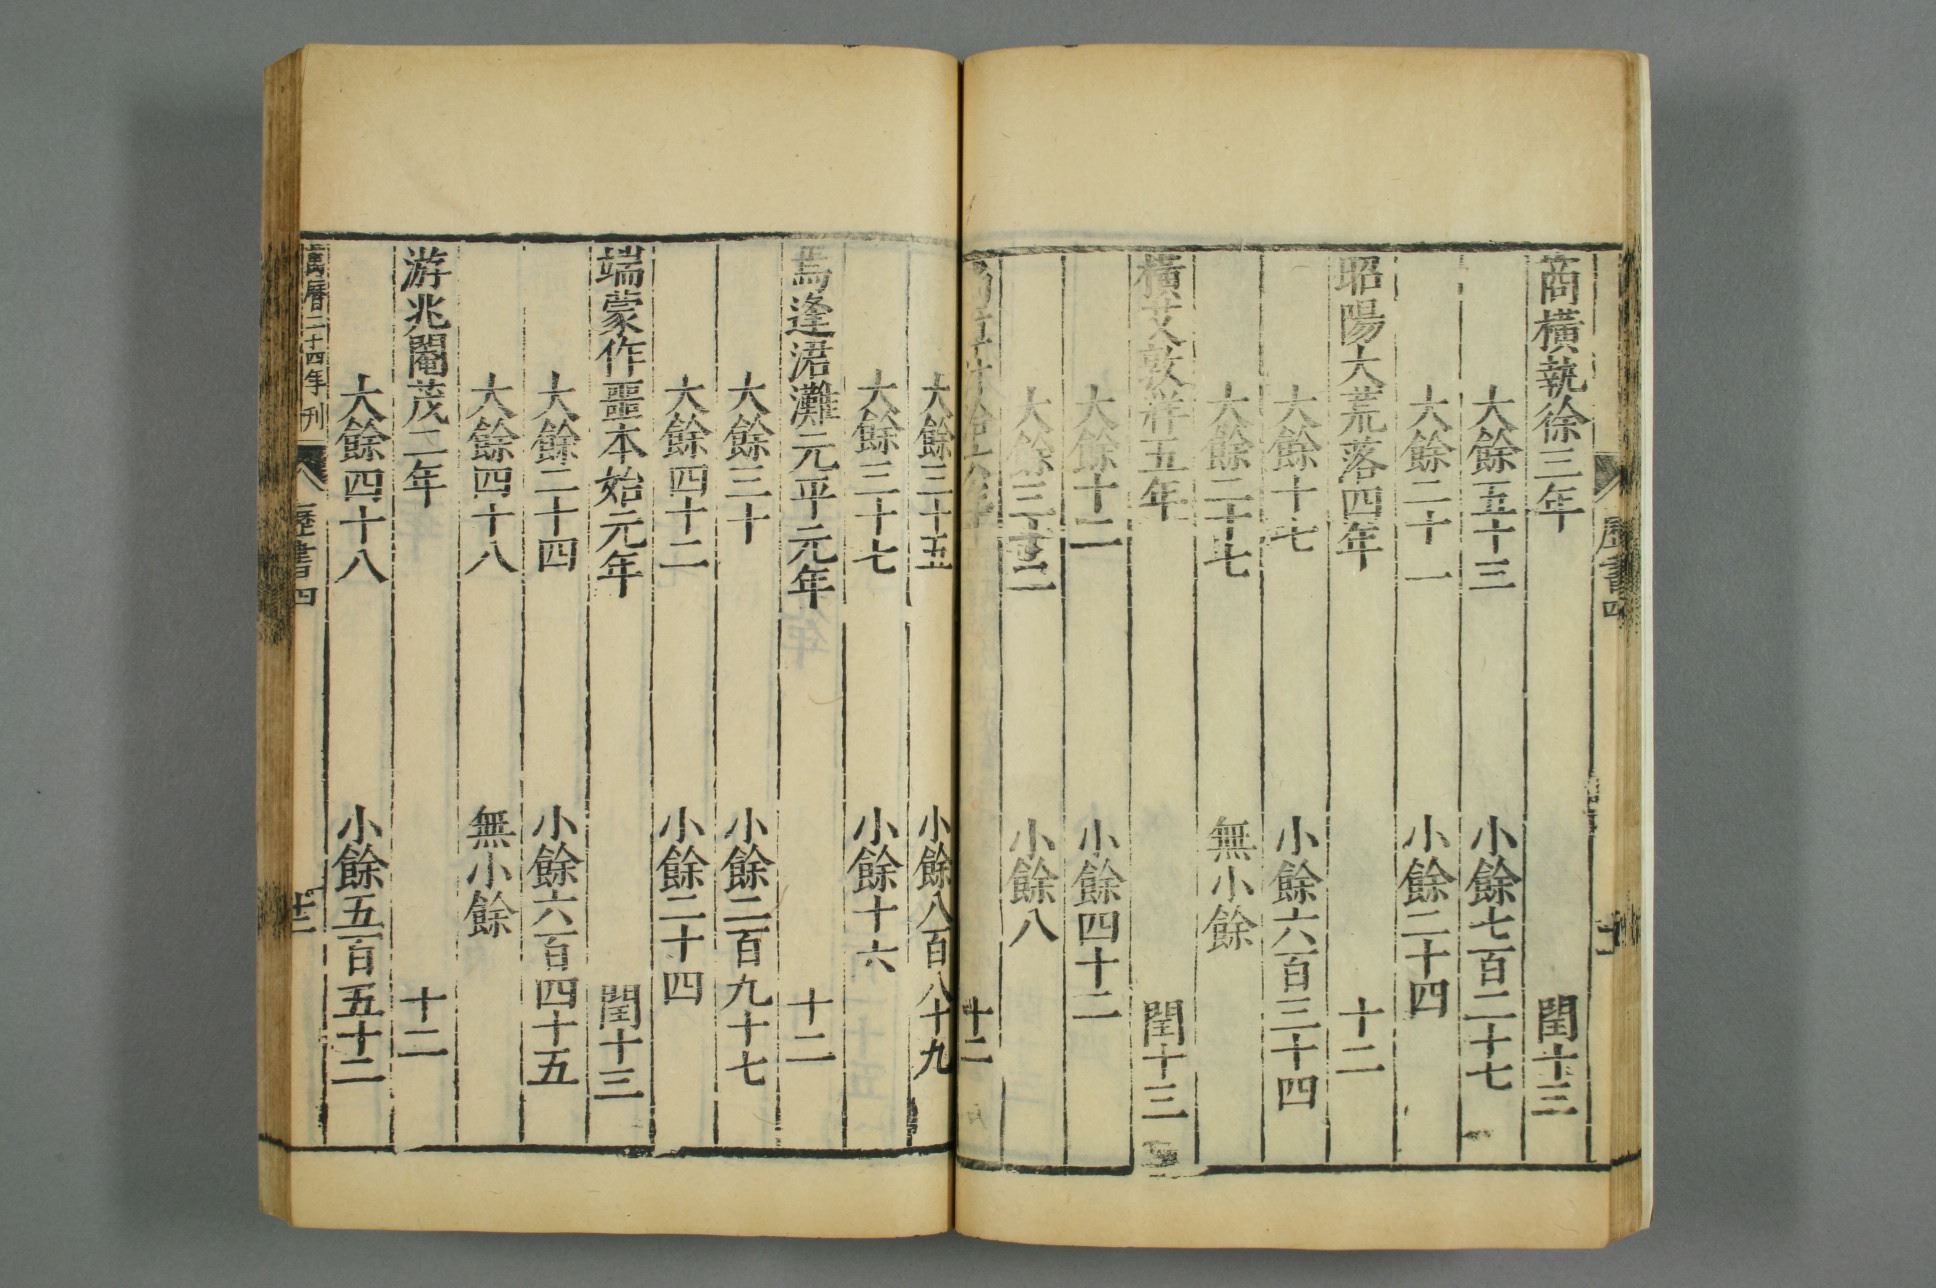 商橫執徐三年 閏十三
大餘五十三 小餘七百二十七
大餘二十一 小餘二十四
昭陽大荒落四年 十二
大餘十七 小餘六百三十四
大餘二十七 無小餘
橫艾敦牂五年 閏十三
大餘十二 小餘四十二
大餘三十二 小餘八
十二
大餘三十五 小餘八百八十九
大餘三十七 小餘十六
焉逢涒灘元平元年 十二
大餘三十 小餘二百九十七
大餘四十二 小餘二十四
端蒙作噩本始元年 閏十三
大餘二十四 小餘六百四十五
大餘四十八 無小餘
游兆閹茂二年 十二
大餘四十八 小餘五百五十二
萬曆二十四年刊 歷書四